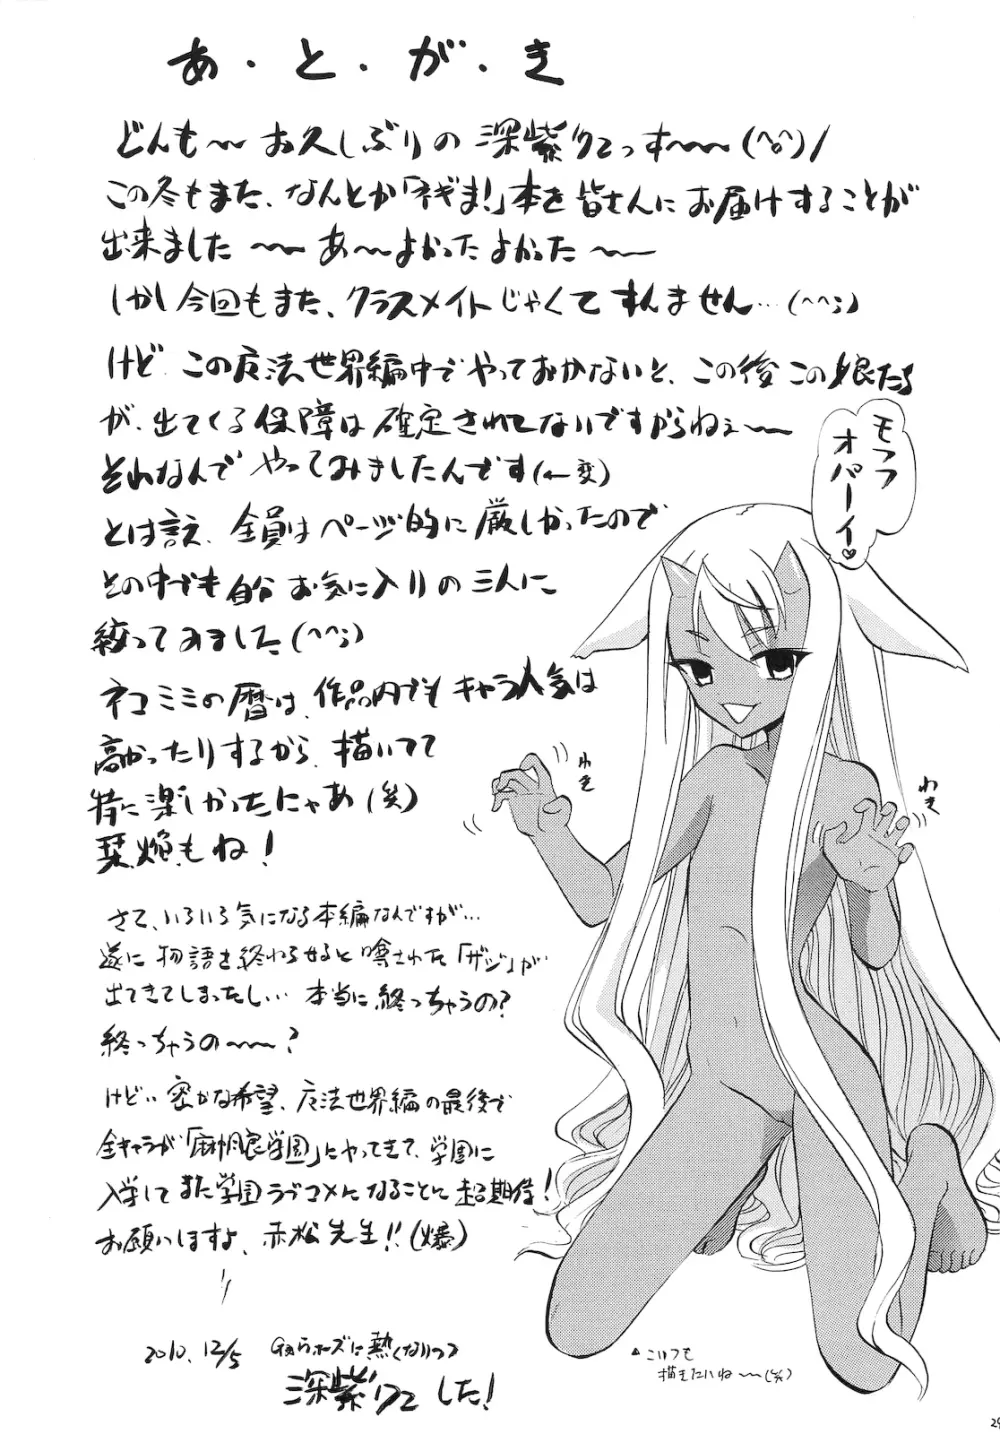 あ・と・が・き
どんも～お久しぶりの深紫でっす～～(^o^)/
この冬もまた、なんとか「ネギま!」本を皆さんにお届けすることが
出来ました～～あ～よかったよかった～～
しかし今回もまた、クラスメイトじゃくてすんません…(^^;)
けど、この魔法世界編中でやっておかないと、この後この娘たち
が、出てくる保障は確定されてないですからねぇ～～
それなんでやってみましたんです(←変)
とは言え、全員はページ的に厳しかったので
その中でも自分お気に入りの三人に
絞ってみました(^^;)
ネコミミの暦は、作品内でもキャラ人気は
高かったりするから、描いてて
特に楽しかったにゃあ(笑)
栞、焔もね!
さて、いろいろ気になる本編なんですが…
遂に物語を終わらせると噂された「ザジ」が…
出てきてしまったし…本当に終っちゃうの?
終っちゃうの～～?
けど…密かな希望、魔法世界編の最後で
全キャラが「麻帆良学園」にやってきて、学園に
入学してまた学園ラブコメになることに超期待!
お願いしますよ、赤松先生!!(爆)
2010.12/5
に熱くなりつつ
深紫でした!
モフフ
オパーイ♡
わき
わき
▲こいつも
描きたいね～(笑)